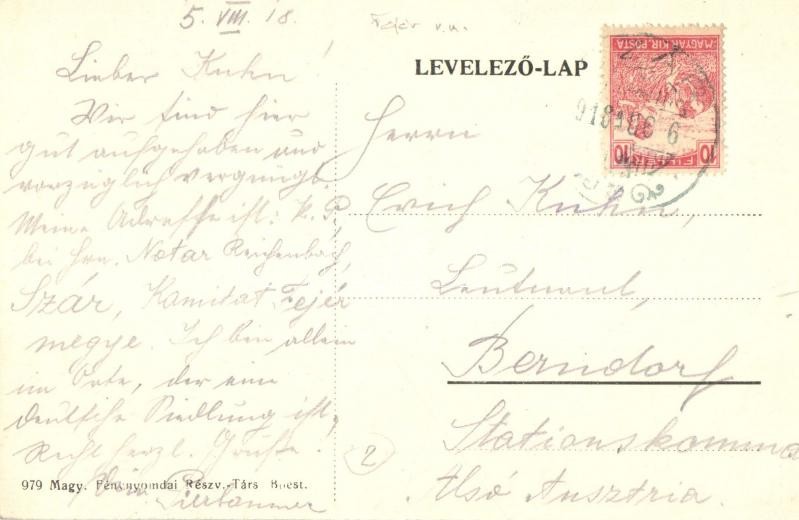 5. VIII. 18.
Fejér v.m.
Lieber Kuhn!
Wir sind hier
gut aufgehoben und
vorzüglich vergnügt.
Meine Adresse ist: K. P.
bei Hrn. Notar Reichenbach,
Szár, Komitat Fejér
megye. Ich bin allein
im Orte, der eine
deutsche Siedlung ist.
Recht herzl. Grüße.
Dein
979 Magy. Fénynyomdai Részv.-Társ Bpest.
LEVELEZŐ-LAP
MAGYAR KIR. POSTA
10
10
918 AUG 6
Herrn
Erich Kuhn,
Leutnant,
Berndorf
Stationskomma
Alsó Ausztria.
2